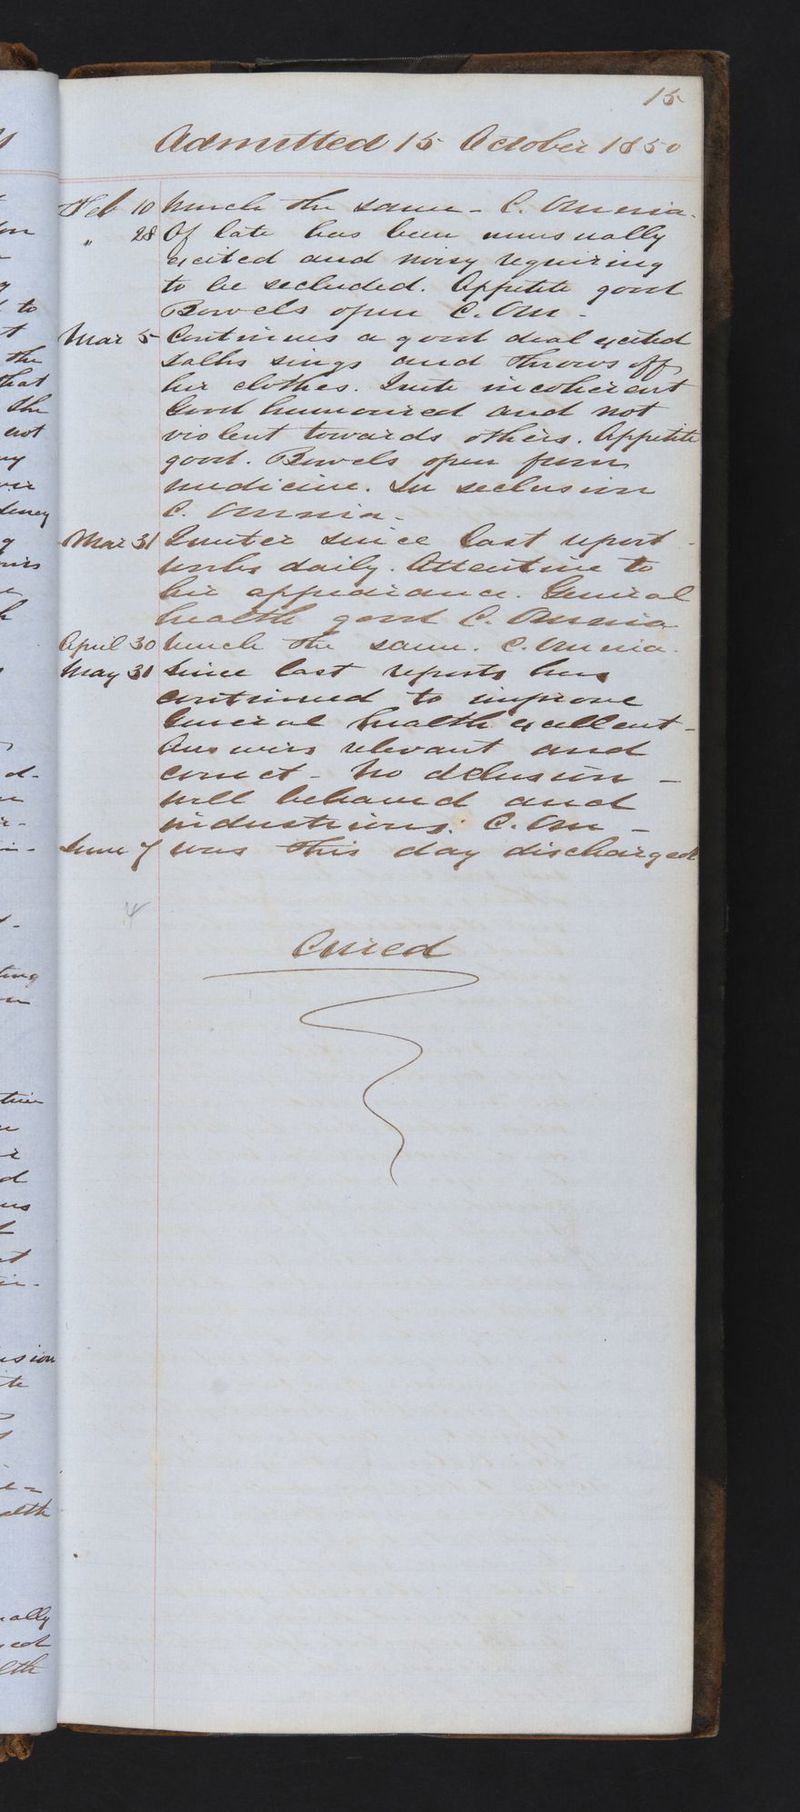 15
Admitted 15 October 1850
Feb 10 Much the same - C. Omnia.
" 28 Of late has been unusually
excited and noisy requiring
to be secluded. Appetite good
Bowels open C. Om -
Mar 5 Continues a good deal excited
talks sings and throws off
her clothes. Quite incoherent
Good humoured and not
violent towards others. Appetite
good. Bowels open from
medicine. In seclusion
C. Omnia -
Mar 31 Quieter since last report -
works daily. Attentive to
her appearance. General
health good C. Omnia
April 30 Much the same. C. Omnia.
May 31 Since last reports has
continued to improve
General health excellent -
Answers relevant and
correct - No delusion -
well behaved and
industrious. C. Om -
June 7 was this day discharged
Cured